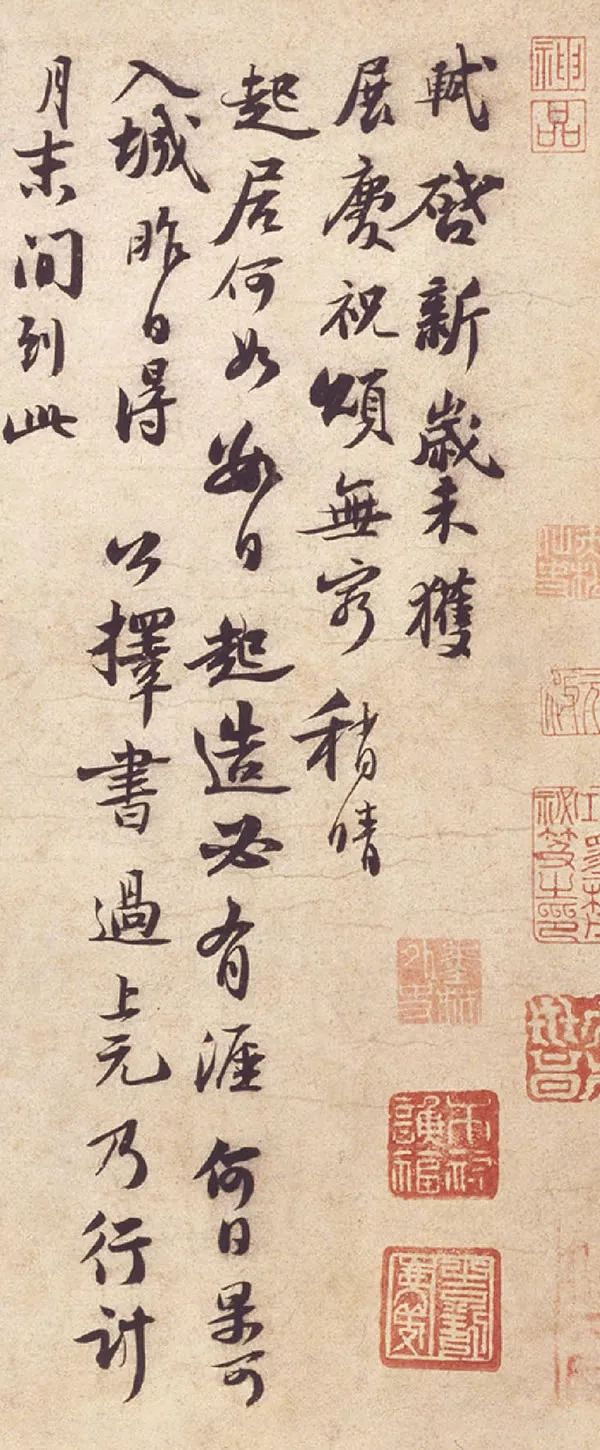 神品
軾啓新歲未獲
展慶祝頌無窮稍晴
起居何如數日起造必有涯何日果可
入城昨日得公擇書過上元乃行計
月末間到此